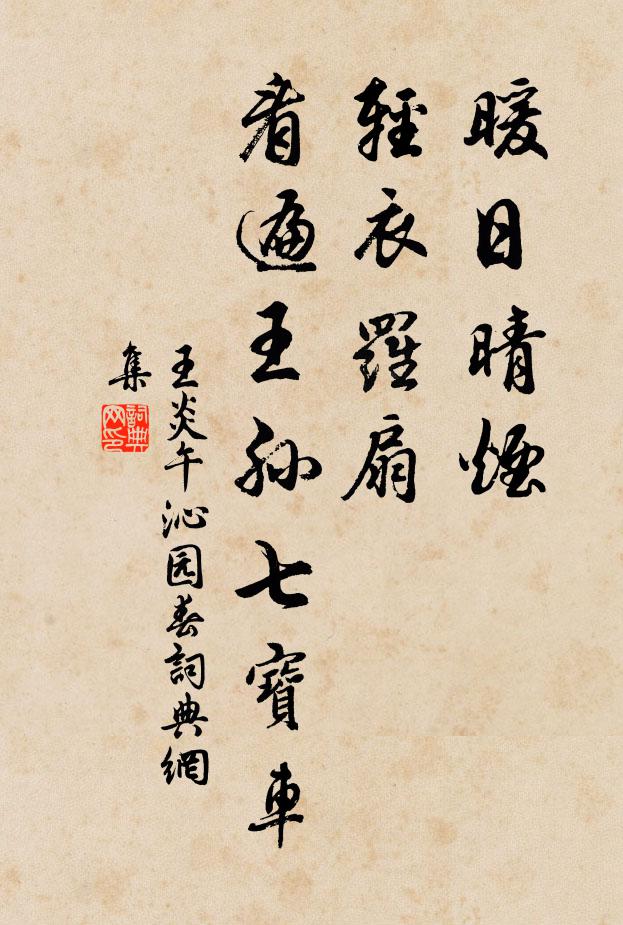 暖日晴煙
輕衣羅扇
看遍王孫七寶車
王炎午沁园春詞典網
集
詞典
网印